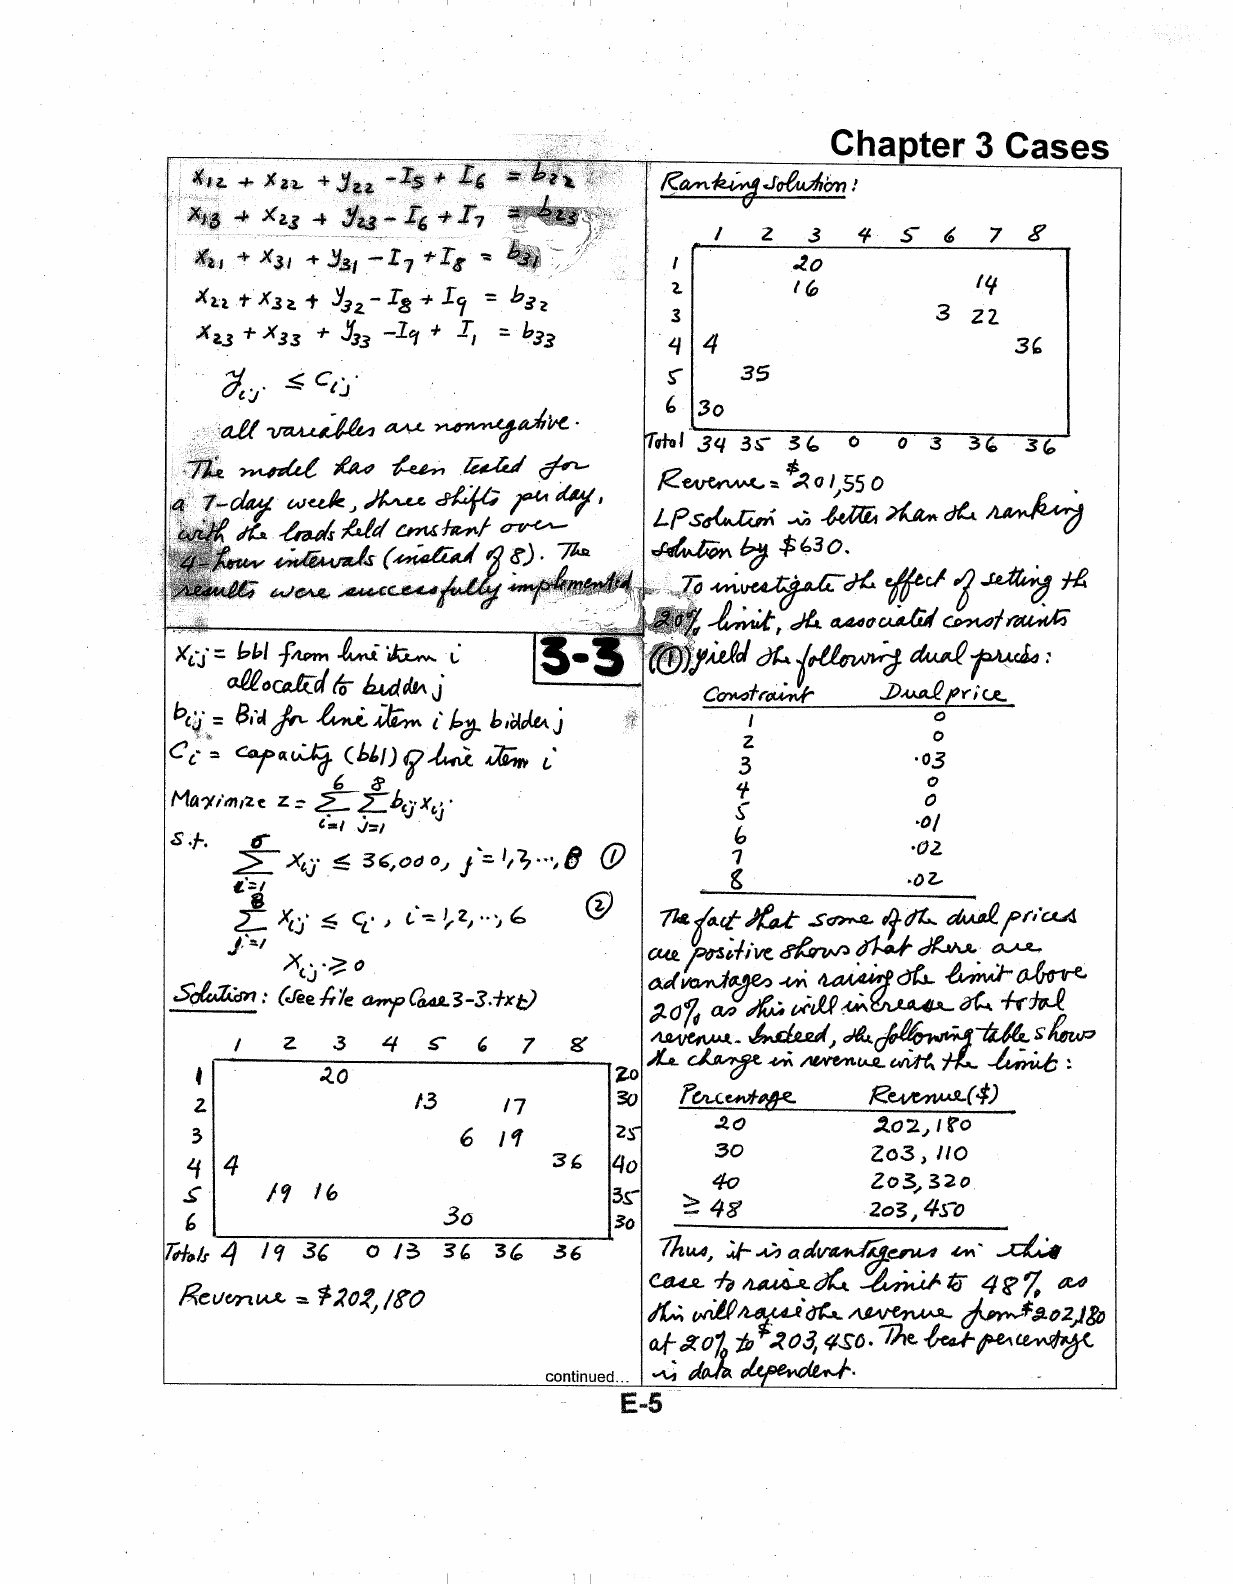 Chapter 3 Cases
x12 + x22 + y22 - I5 + I6 = b22
x13 + x23 + y23 - I6 + I7 = b23
x21 + x31 + y31 - I7 + I8 = b31
x22 + x32 + y32 - I8 + I9 = b32
x23 + x33 + y33 - I9 + I1 = b33
yij ≤ cij
all variables are nonnegative.
The model has been tested for
a 7-day week, three shifts per day,
with the loads held constant over
4-hour intervals (instead of 8). The
results were successfully implemented
3-3
xij = bbl from line item i
allocated to bidder j
bij = Bid for line item i by bidder j
Ci = capacity (bbl) of line item i
Maximize z = 6 Σ i=1 8 Σ j=1 bij xij
s.t.
6 Σ i=1 xij ≤ 36,000, j = 1,2,..., 8 ①
8 Σ j=1 xij ≤ Ci, i = 1,2,..., 6 ②
xij ≥ 0
Solution: (see file ampCase3-3.txt)
1 2 3 4 5 6 7 8
1 20 20
2 13 17 30
3 6 19 25
4 4 36 40
5 19 16 35
6 30 30
Totals 4 19 36 0 13 36 36 36
Revenue = $202,180
continued...
Ranking solution:
1 2 3 4 5 6 7 8
1 20
2 16 14
3 3 22
4 4 36
5 35
6 30
Total 34 35 36 0 0 3 36 36
Revenue = $201,550
LP solution is better than the ranking
solution by $630.
To investigate the effect of setting the
20% limit, the associated constraints
(①) yield the following dual prices:
Constraint Dual price
1 0
2 0
3 .03
4 0
5 0
6 .01
7 .02
8 .02
The fact that some of the dual prices
are positive shows that there are
advantages in raising the limit above
20% as this will increase the total
revenue. Indeed, the following table shows
the change in revenue with the limit:
Percentage Revenue($)
20 202,180
30 203,110
40 203,320
≥ 48 203,450
Thus, it is advantageous in this
case to raise the limit to 48% as
this will raise the revenue from $202,180
at 20% to $203,450. The best percentage
is data dependent.
E-5